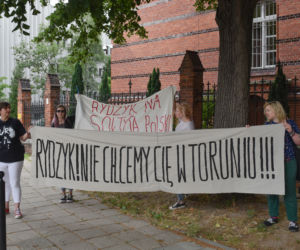 RYDZYK NA
SOŁTYSA POLSKI
RYDZYK! NIE CHCEMY CIĘ W TORUNIU!!!